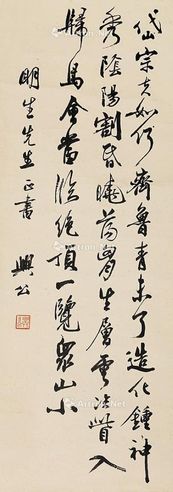 岱宗夫如何齊魯青未了造化鍾神
秀陰陽割昏曉蕩胸生層雲決眥入
歸鳥會當臨絕頂一覽衆山小
明生先生正書
興公